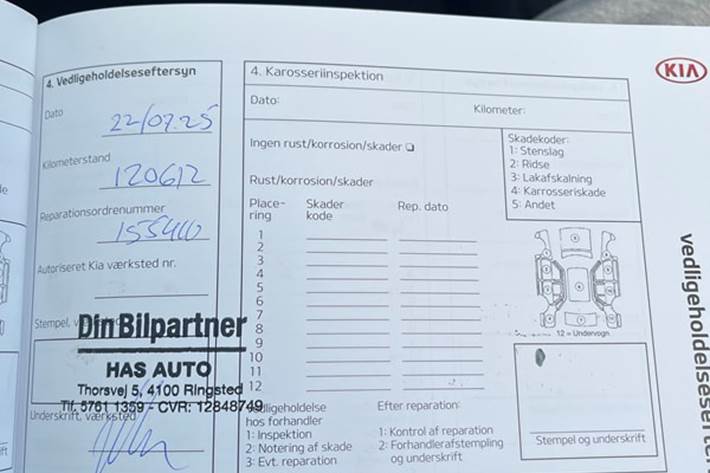 KIA
4. Vedligeholdelseseftersyn
Dato
22/07.25
Kilometerstand
120612
Reparationsordrenummer
155400
Autoriseret Kia værksted nr.
Stempel, værksted
Din Bilpartner
HAS AUTO
Thorsvej 5, 4100 Ringsted
Tlf. 5761 1359 - CVR: 12848749
Underskrift, værksted
4. Karosseriinspektion
Dato:
Kilometer:
Ingen rust/korrosion/skader
Rust/korrosion/skader
Skadekoder:
1: Stenslag
2: Ridse
3: Lakafskalning
4: Karrosseriskade
5: Andet
Place-
ring
Skader
kode
Rep. dato
1
2
3
4
5
6
7
8
9
10
11
12
12 = Undervogn
Vedligeholdelse
hos forhandler
1: Inspektion
2: Notering af skade
3: Evt. reparation
Efter reparation:
1: Kontrol af reparation
2: Forhandlerafstempling
og underskrift
Stempel og underskrift